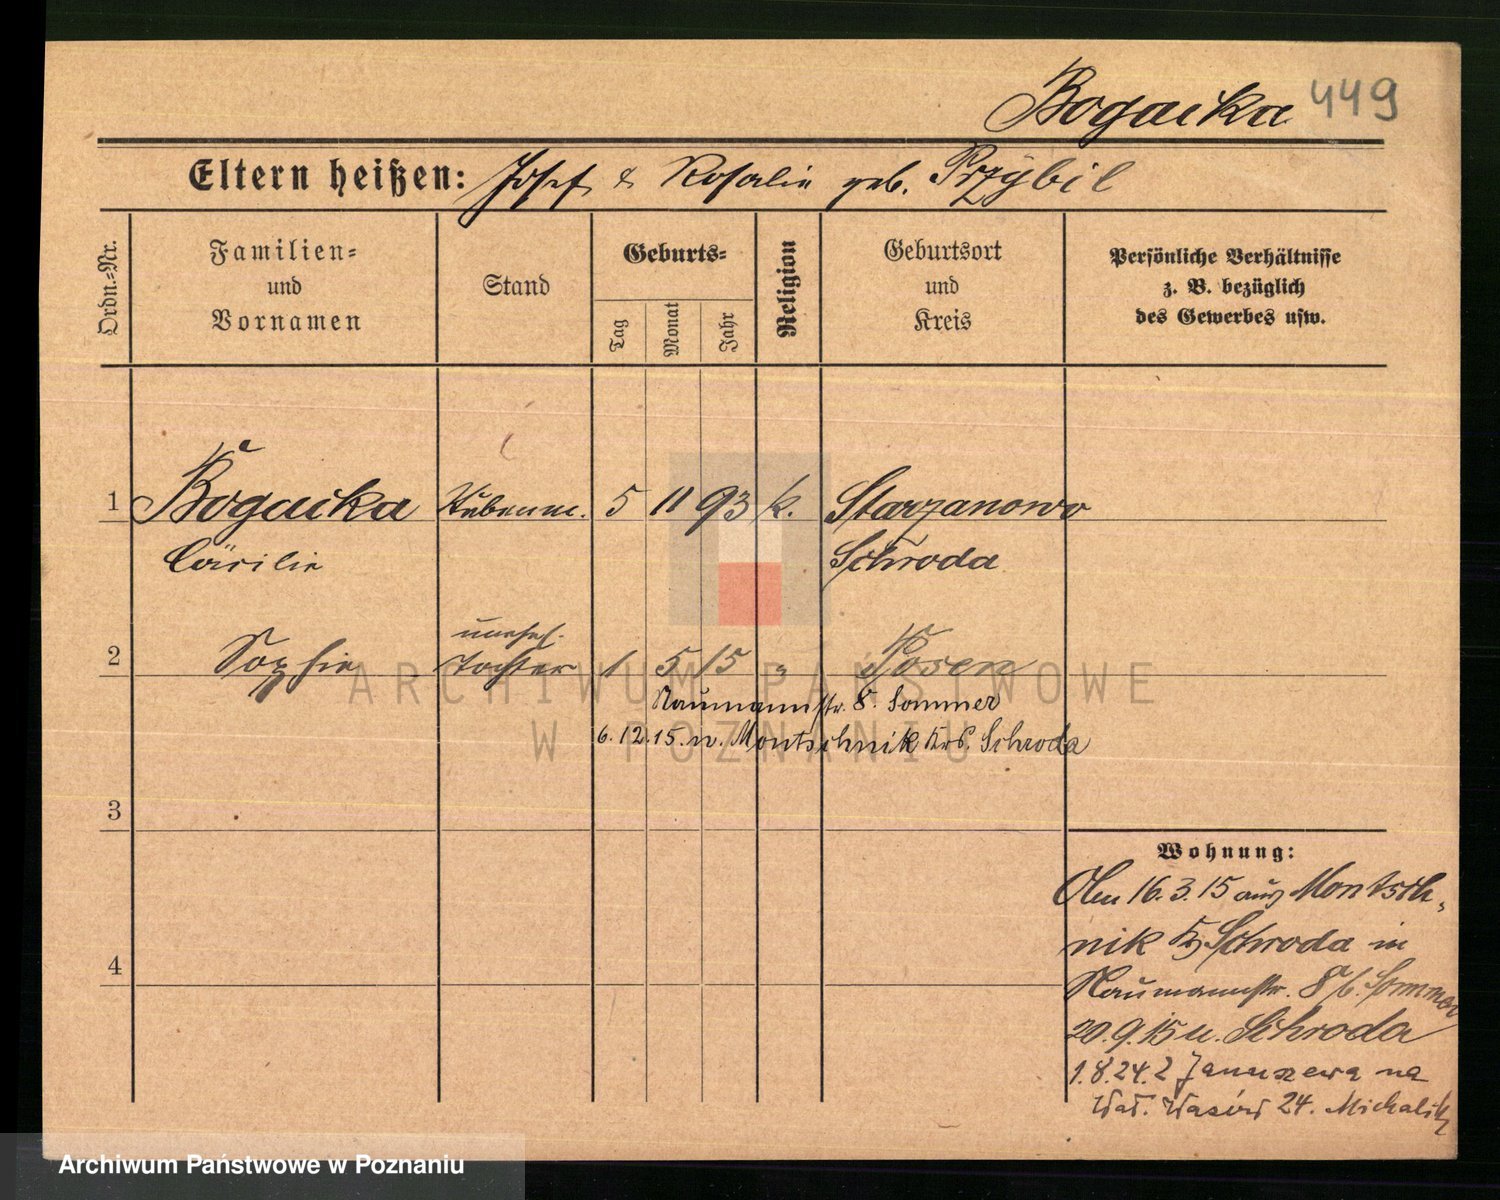 Bogacka 449
Eltern heißen: Josef & Rosalie geb. Przybil
Ordn.=Nr.
Familien=
und
Vornamen
Stand
Geburts=
Tag
Monat
Jahr
Religion
Geburtsort
und
Kreis
Persönliche Verhältnisse
z. B. bezüglich
des Gewerbes usw.
1 Bogacka 5 11 93 k. Starzanowo
Cäcilie Schroda
unehel.
2 Sophie Tochter 1 5 15 " Posen
Naumannstr. 8. Sommer
6.12.15. n. Montschnik Krs. Schroda
3
Wohnung:
Am 16.3.15 aus Montsch-
nik Kr Schroda in
4
Naumannstr. 8 b. Sommer
20.9.15 n. Schroda
1.8.24. z Januszewa na
Wał. 24. Michalik
ARCHIWUM PAŃSTWOWE
W POZNANIU
Archiwum Państwowe w Poznaniu